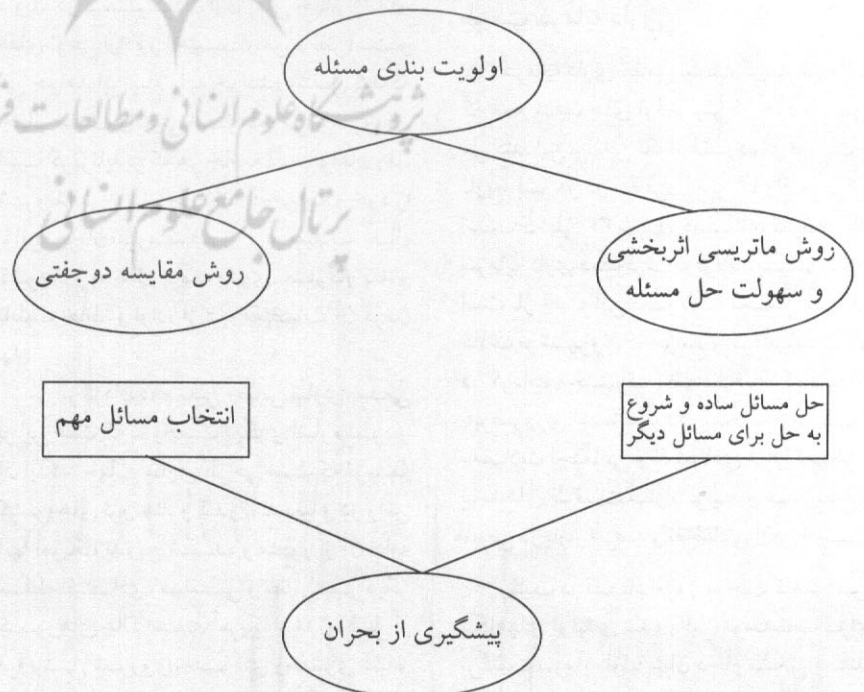 اولویت بندی مسئله
پژوهشگاه علوم انسانی و مطالعات فر
پرتال جامع علوم انسانی
روش ماتریسی اثربخشی
و سهولت حل مسئله
روش مقایسه دوجفتی
حل مسائل ساده و شروع
به حل برای مسائل دیگر
انتخاب مسائل مهم
پیشگیری از بحران